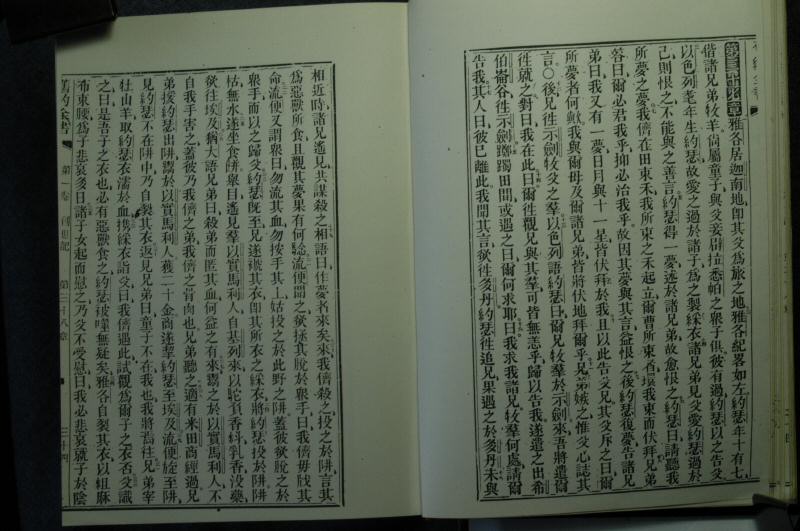 第三十七章雅各居迦南地卽其父爲旅之地雅各紀畧如左約瑟年十有七
偕諸兄弟牧羊尙屬童子與父妾辟拉悉帕之衆子俱彼有過約瑟以之告父
以色列耄年生約瑟故愛之過於諸子爲之製綵衣諸兄弟見父愛約瑟過於
己則恨之不能與之善言約瑟得一夢述於諸兄弟故愈恨之約瑟曰請聽我
所夢之夢我儕在田束禾我所束之禾起立爾曹所束者環我束而伏拜兄弟
答曰爾必君我乎抑必治我乎故因其夢與其言益恨之後約瑟復夢告諸兄
弟曰我又有一夢日月與十一星皆伏拜於我且以此告父兄其父斥之曰爾
所夢者何歟我與爾母及爾諸兄弟皆將伏地拜爾乎兄弟嫉之惟父心誌其
言○後兄往示劍牧父之羣以色列語約瑟曰爾兄牧羣於示劍來吾將遣爾
往就之對曰我在此曰爾往觀兄與其羣可皆無恙乎歸以告我遂遣之出希
伯崙谷往示劍躑躅田間或遇之曰爾何求耶曰我求我諸兄牧羣何處請爾
告我其人曰彼已離此我聞其言欲往多丹約瑟往追兄果遇之於多丹未與
相近時諸兄遙見共謀殺之相語曰作夢者來矣來我儕殺之投之於阱言其
爲惡獸所食且觀其夢果有何驗流便聞之欲拯其脫於衆手曰我儕毋戕其
命流便又謂衆曰勿流其血勿按手其上姑投之於此野之阱蓋彼欲脫之於
衆手而以之歸父約瑟旣至兄遂褫其衣卽其所衣之綵衣將約瑟投於阱阱
枯無水遂坐食阱舉目遙見羣以實馬利人自基列來以駝負香料乳香沒藥
欲往埃及猶大語兄弟曰殺弟而匿其血何益之有來鬻之於以實馬利人不
自我手害之蓋彼乃我儕之弟我儕之骨肉也兄弟聽之適有米田商經過兄
弟援約瑟出阱鬻於以實馬利人獲二十金商遂挈約瑟至埃及流便旋至阱
見約瑟不在阱中乃自裂其衣返見兄弟曰童子不在我也我將焉往兄弟宰
牡山羊取約瑟衣濡於血攜綵衣詣父曰我儕遇此試觀爲爾子之衣否父識
之曰是也吾子之衣也必有惡獸食之約瑟被噬無疑矣雅各自裂其衣以粗麻
布束腰爲子悲哀多日諸子女起而慰之乃父不受慰曰我必悲哀就子於陰
舊約全書
第一卷
創世記
第三十八章
三十四